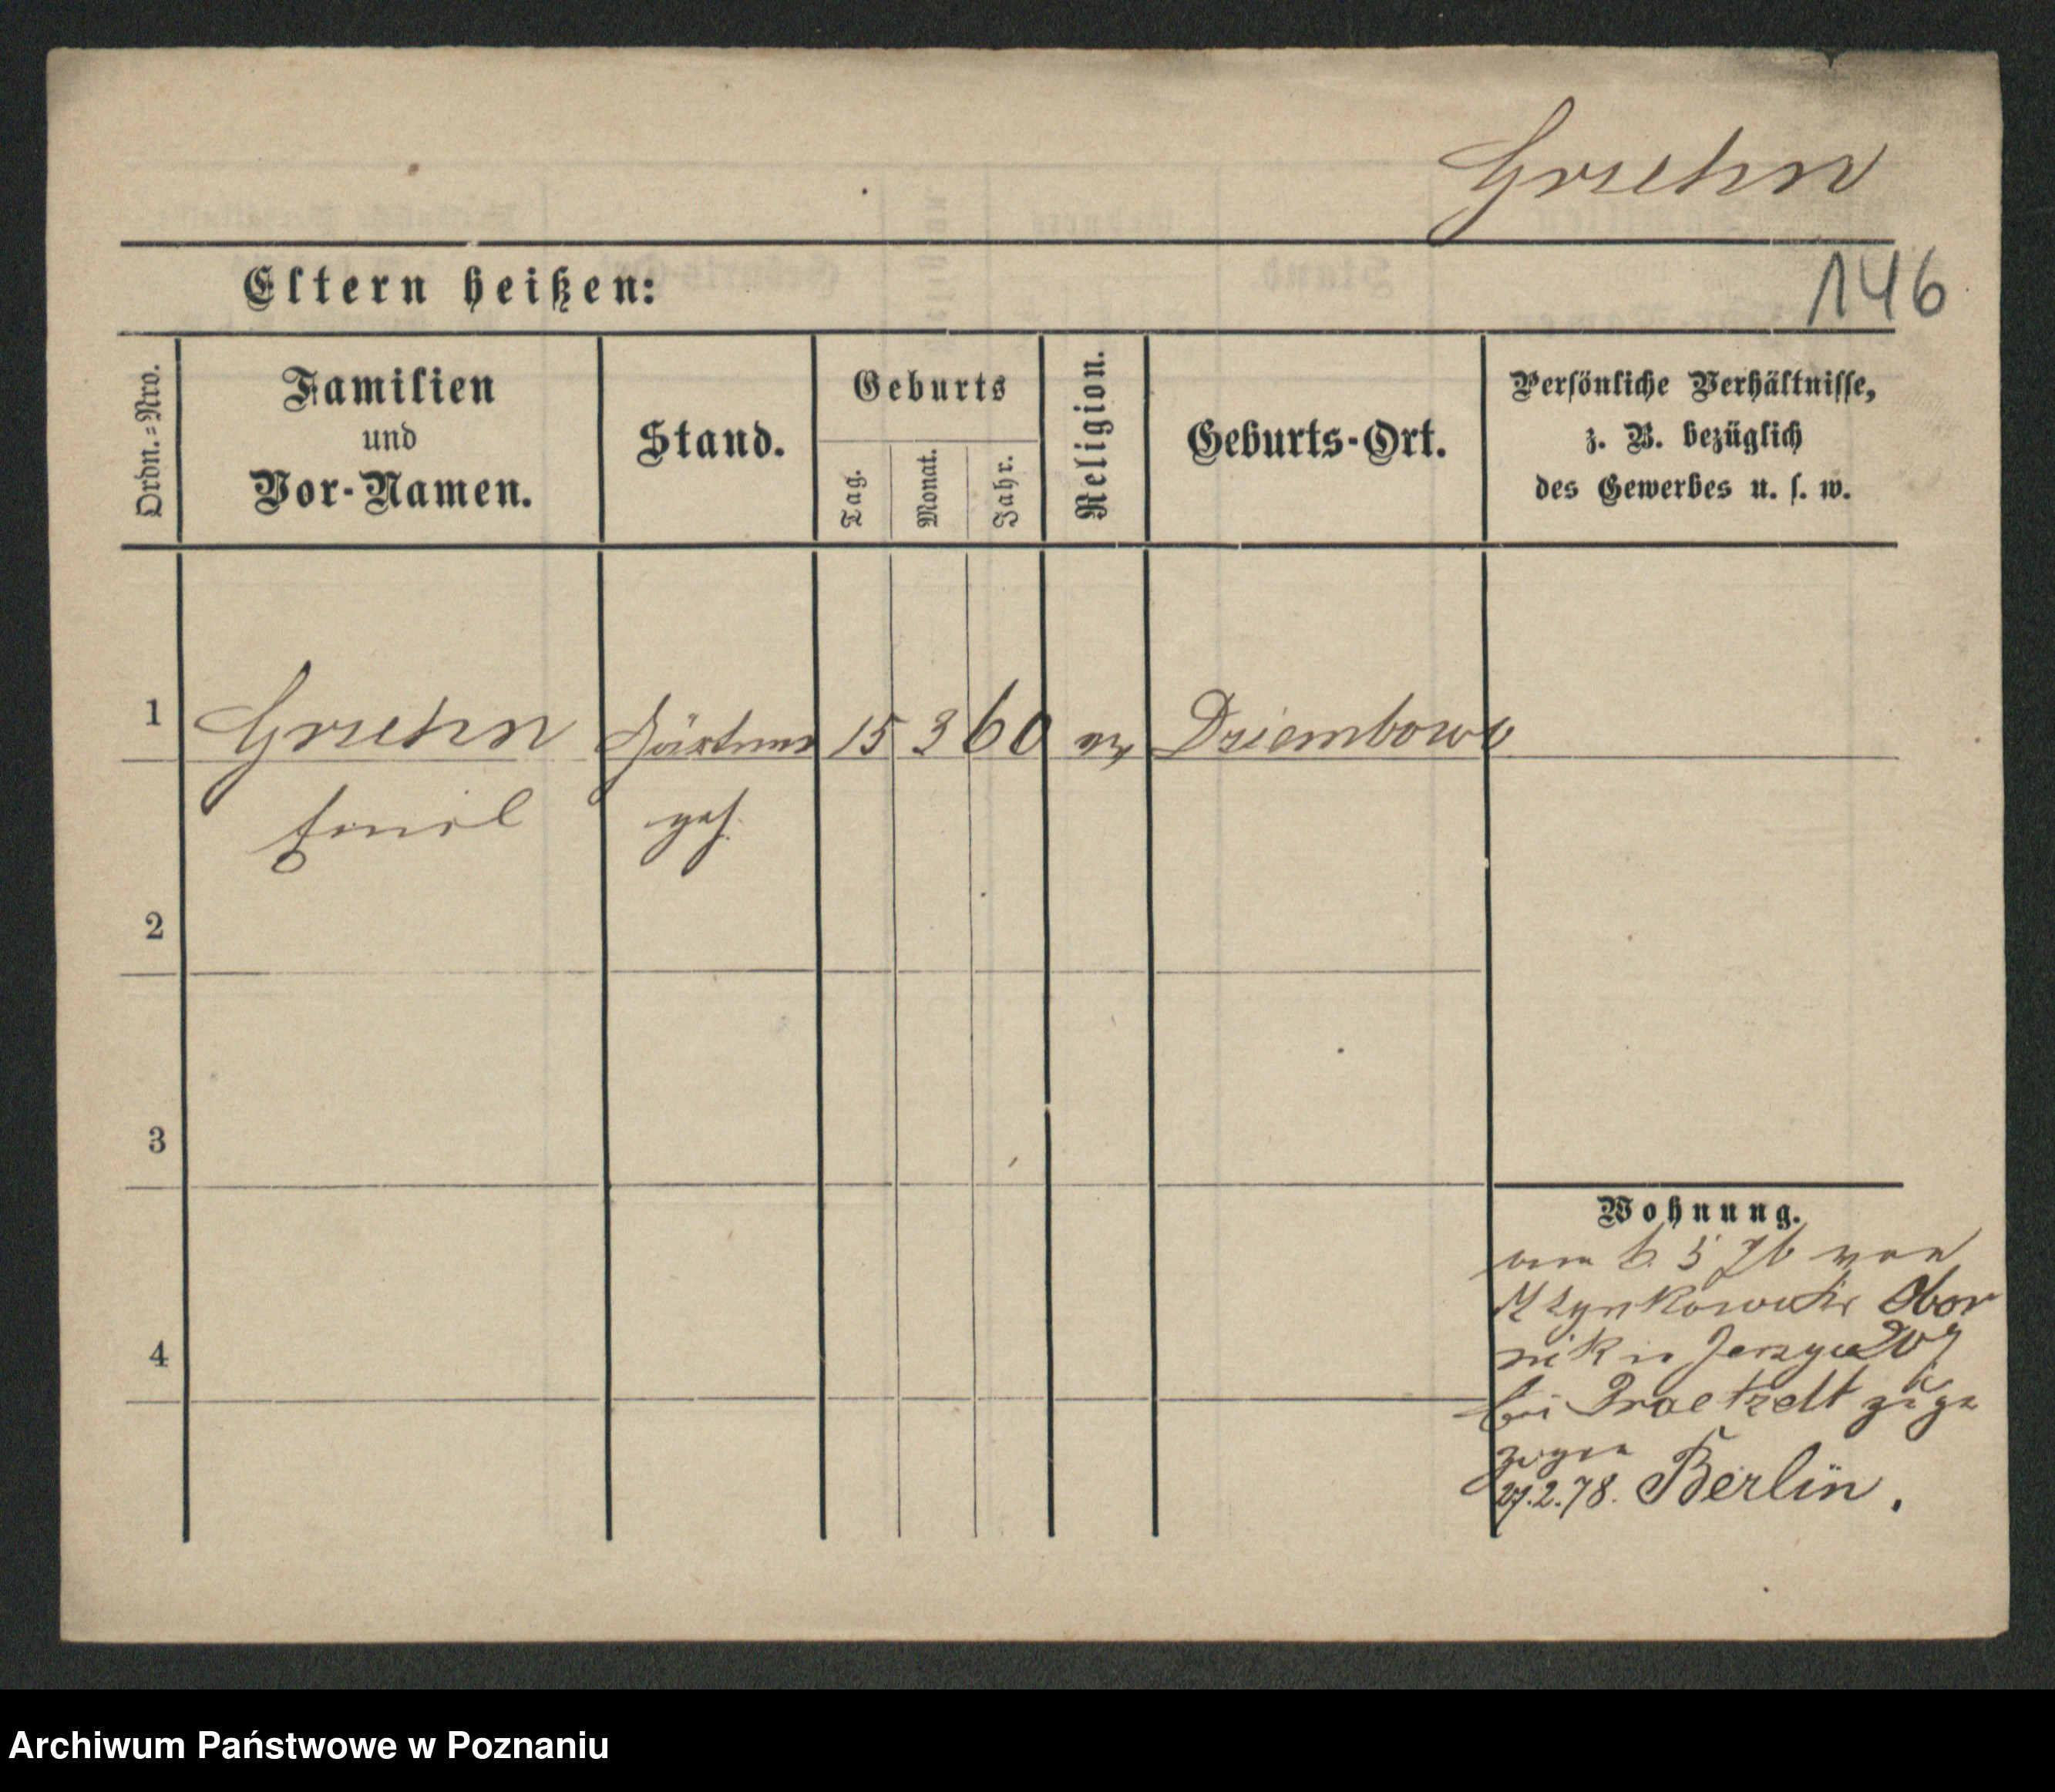 Gruehn
146
Eltern heißen:
Ordn.=Nro.
Familien
und
Vor-Namen.
Stand.
Geburts
Tag.
Monat.
Jahr.
Religion.
Geburts-Ort.
Persönliche Verhältnisse,
z. B. bezüglich
des Gewerbes u. s. w.
1
Gruehn
Gärtner
15
3
60
ev
Dziembowo
Emil
geh.
2
3
4
Wohnung.
am 6. 5 76 von
Obor
nik in Jerzyce
bei Praetzelt zuge
zogen
27.2.78. Berlin.
Archiwum Państwowe w Poznaniu